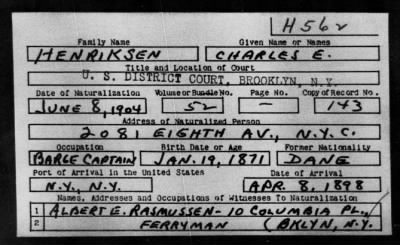 H562
Family Name Given Name or Names
HENRIKSEN CHARLES E.
Title and Location of Court
U. S. DISTRICT COURT, BROOKLYN, N.Y.
Date of Naturalization Volume or Bundle No. Page No. Copy of Record No.
JUNE 8, 1904 52 — 143
Address of Naturalized Person
2081 EIGHTH AV., N.Y.C.
Occupation Birth Date or Age Former Nationality
BARGE CAPTAIN JAN. 19, 1871 DANE
Port of Arrival in the United States Date of Arrival
N.Y., N.Y. APR. 8, 1898
Names, Addresses and Occupations of Witnesses To Naturalization
1 ALBERT E. RASMUSSEN - 10 COLUMBIA PL.,
2 FERRYMAN (BKLYN, N.Y.